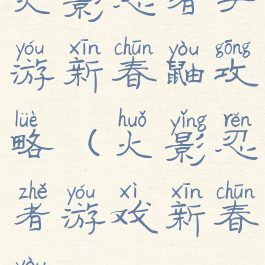 火 影 忍 者
yóu xīn chūn yòu gōng
游 新 春 鼬 攻
lüè huǒ yǐng rěn
略 （ 火 影 忍
zhě yóu xì xīn chūn
者 游 戏 新 春